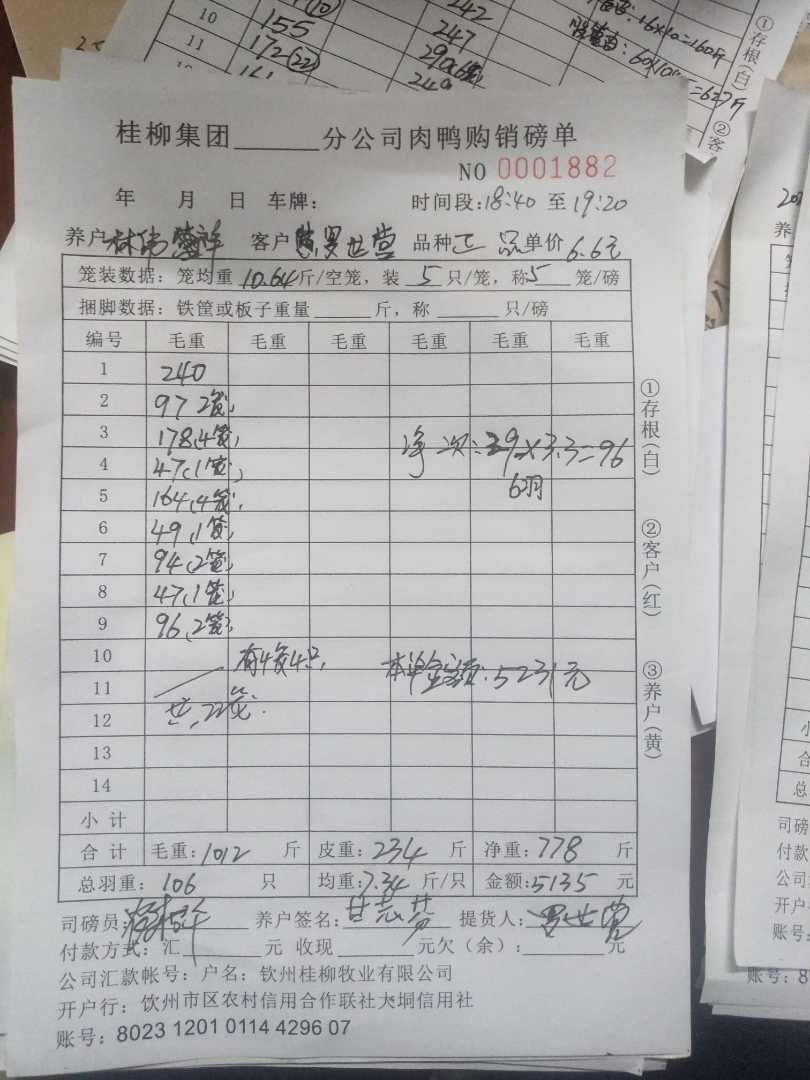 10 155 247
11 172(22)
①存根(白)
②客
桂柳集团______分公司肉鸭购销磅单
NO 0001882
年 月 日 车牌: 时间段:18:40 至 19:20
养户 客户 罗世营 品种 正品 单价 6.6元
笼装数据: 笼均重 10.64 斤/空笼, 装 5 只/笼, 称 5 笼/磅
捆脚数据: 铁筐或板子重量______斤, 称______只/磅
编号 毛重 毛重 毛重 毛重 毛重 毛重
1 240
2 97 2笼,
3 178,4笼,
4 47,1笼,
5 164,4笼,
6 49,1笼,
7 94,2笼,
8 47,1笼,
9 96,2笼,
净次:29×3.3=96
6羽
10 有4笼4只,
11 本单金额:5231元
12 共,22笼.
13
14
小计
合计 毛重:1012 斤 皮重:234 斤 净重:778 斤
总羽重:106 只 均重:7.34 斤/只 金额:5135 元
司磅员: 养户签名:甘志芳 提货人:罗世营
付款方式:汇______元 收现______元欠(余):______元
公司汇款帐号: 户名: 钦州桂柳牧业有限公司
开户行: 钦州市区农村信用合作联社大垌信用社
账号: 8023 1201 0114 4296 07
①存根(白)
②客户(红)
③养户(黄)